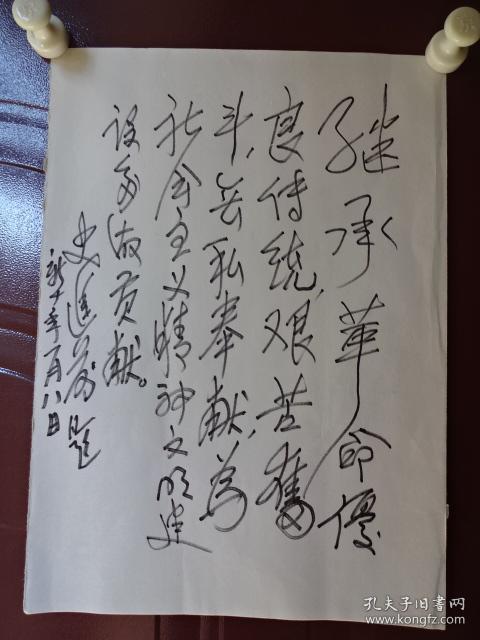 继承革命優
良传统,艰苦奮
斗,无私奉献,为
社会主义精神文明建
设多做贡献。
史进前题
年一月八日
孔夫子旧书网
www.kongfz.com